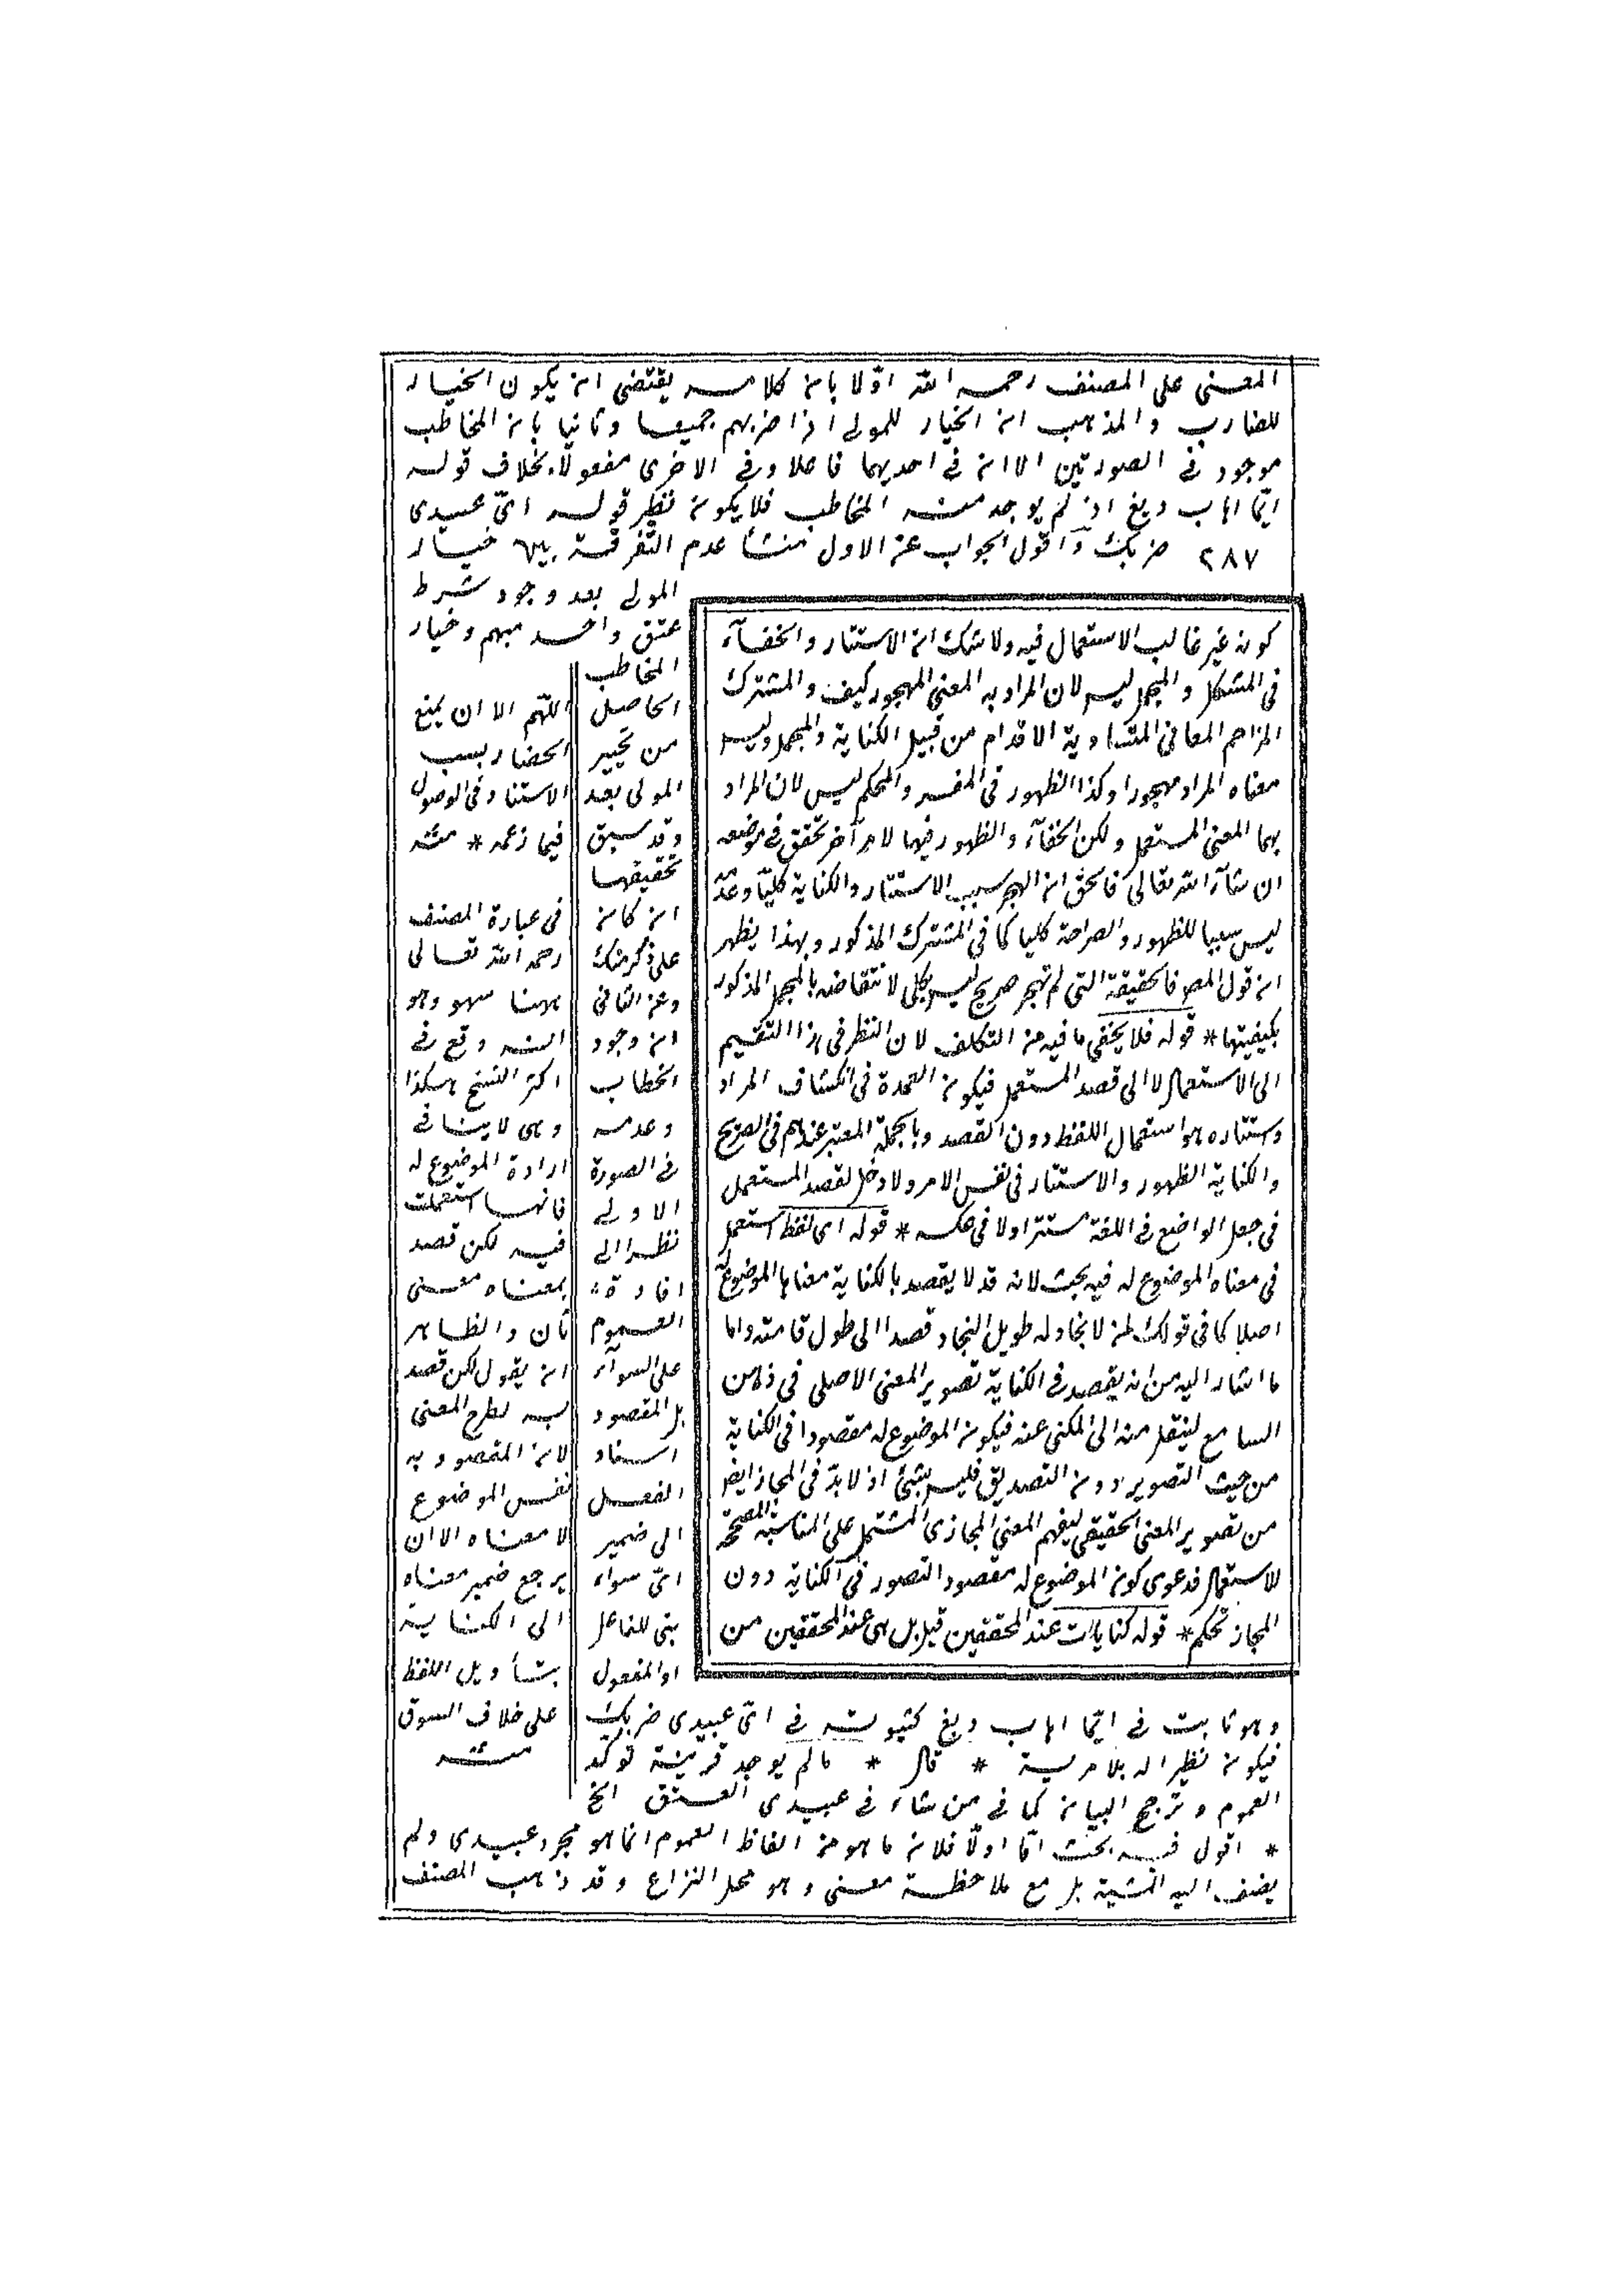 المعنى على المصنف رحمه الله اوّلا بان كلامه يقتضى ان يكون الخيار
للضارب والمذهب ان الخيار للمولى اذا ضربهم جميعا وثانيا بان المخاطب
موجود فى الصورتين الا ان فى احديهما فاعلا وفى الاخرى مفعولا بخلاف قوله
ايّما اهاب دبغ اذ لم يوجد منه المخاطب فلا يكون نظير قوله اىّ عبيدى
٢٨٧ ضربك واقول الجواب عن الاول منشأ عدم التفرقة بين خيار
المولى بعد وجود شرط
عتق واحد مبهم وخيار
المخاطب
الحاصل
من تخيير
المولى بعد
وقد سبق
تحقيقها
ان كان
على ذكر منك
وعن الثانى
ان وجود
الخطاب
وعدمه
فى الصورة
الاولى
نظرا الى
افادة
العموم
على السواء
بل المقصود
اسناد
الفعل
الى ضمير
اىّ سواء
بنى للفاعل
او المفعول
وهو ثابت فى ايّما اهاب دبغ كثبوته فى اىّ عبيدى ضربك
فيكون نظيرا له بلا مرية * قال * مالم يوجد قرينة توكّد
العموم وترجح البيان كما فى من شاء فى عبيدى العتق الخ
* اقول فيه بحث امّا اولّا فلان ما هو من الفاظ العموم انما هو مجرد عبيدى ولم
يضف اليه المشية بل مع ملاحظة معنى وهو محل النزاع وقد ذهب المصنف
كونه غير غالب الاستعمال فيه ولا شك ان الاستتار والخفآء
فى المشكل والمجمل ليس لان المراد به المعنى المهجور كيف والمشترك
المزاحم المعانى المتساوية الاقدام من قبيل الكناية والمجمل وليس
معناه المراد مهجورا وكذا الظهور فى المفسر والمحكم ليس لان المراد
بهما المعنى المستعمل ولكن الخفآء والظهور فيهما لامر آخر تحقق فى موضعه
ان شآء الله تعالى فالحق ان الهجر سبب الاستتار والكناية كليّا وعدمه
ليس سببا للظهور والصراحة كليا كما فى المشترك المذكور وبهذا يظهر
ان قول المص فالحقيقة التى لم تهجر صريح ليس بكلى لانتقاضه بالمجمل المذكور
بكيفيتها * قوله فلا يخفى ما فيه من التكلف لان النظر فى هذا التقسيم
الى الاستعمال لا الى قصد المستعمل فيكون العمدة فى انكشاف المراد
واستتاره هو استعمال اللفظ دون القصد وبالجملة المعتبر عندهم فى الصريح
والكناية الظهور والاستتار فى نفس الامر ولا دخل لقصد المستعمل
فى جعل الواضع فى اللغة مستترا ولا فى عكسه * قوله اى لفظ استعمل
فى معناه الموضوع له فيه بحث لانه قد لا يقصد بالكناية معناها الموضوع له
اصلا كما فى قولك لمن لا نجاد له طويل النجاد قصدا الى طول قامته واما
ما اشار اليه من انه يقصد فى الكناية تصوير المعنى الاصلى فى ذهن
السامع لينتقل منه الى المكنى عنه فيكون الموضوع له مقصودا فى الكناية
من حيث التصوير دون التصديق فليس بشئ اذ لا بدّ فى المجاز ايضا
من تصوير المعنى الحقيقى ليفهم المعنى المجازى المشتمل على المناسبة المصححة
للاستعمال فدعوى كون الموضوع له مقصود التصور فى الكناية دون
المجاز تحكم * قوله كنايات عند المحققين قيل بل هى عند المحققين من
اللهم الا ان يمنع
انحصار سبب
الاستتار فى الوصول
فيما زعمه * منه
فى عبارة المصنف
رحمه الله تعالى
ههنا سهو وهو
انه وقع فى
اكثر النسخ هكذا
وهى لا ينافى
ارادة الموضوع له
فانها استعملت
فيه لكن قصد
بمعناه معنى
ثان والظاهر
ان يقول لكن قصد
به لطرح المعنى
لان المقصود به
نفس الموضوع
لا معناه الا ان
يرجع ضمير معناه
الى الكناية
بتأويل اللفظ
على خلاف السوق
منه